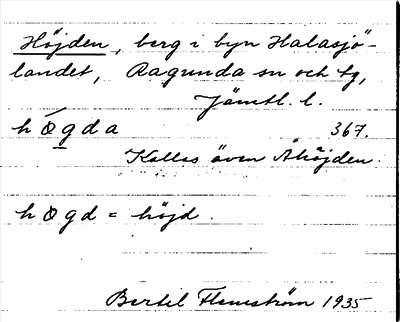 Höjden, berg i byn Halasjö-
landet, Ragunda sn och tg,
Jämtl. l.
högda 367.
Kallas även Åhöjden.
högd = höjd.
Bertil Flemström 1935